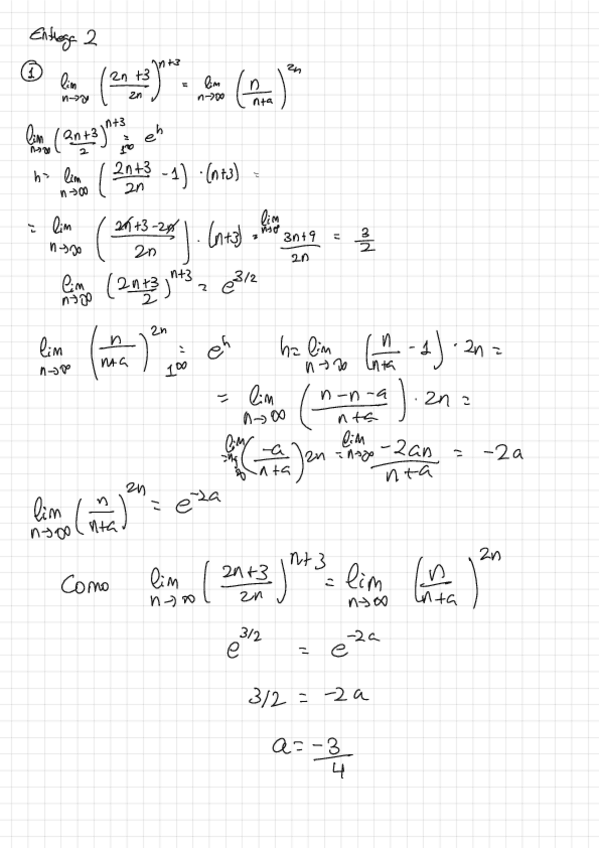 Entrega 2
① lim n→∞ ((2n+3)/2n)^(n+3) = lim n→∞ (n/(n+a))^(2n)
lim n→∞ ((2n+3)/2)^(n+3) = 1^∞ e^h
h = lim n→∞ ((2n+3)/2n - 1) · (n+3) =
= lim n→∞ ((2n+3-2n)/2n) · (n+3) = lim n→∞ (3n+9)/2n = 3/2
lim n→∞ ((2n+3)/2)^(n+3) = e^(3/2)
lim n→∞ (n/(n+a))^(2n) = 1^∞ e^h h = lim n→∞ (n/(n+a) - 1) · 2n =
= lim n→∞ ((n-n-a)/(n+a)) · 2n =
= lim n→∞ (-a/(n+a)) 2n = lim n→∞ (-2an)/(n+a) = -2a
lim n→∞ (n/(n+a))^(2n) = e^(-2a)
Como lim n→∞ ((2n+3)/2n)^(n+3) = lim n→∞ (n/(n+a))^(2n)
e^(3/2) = e^(-2a)
3/2 = -2a
a = -3/4